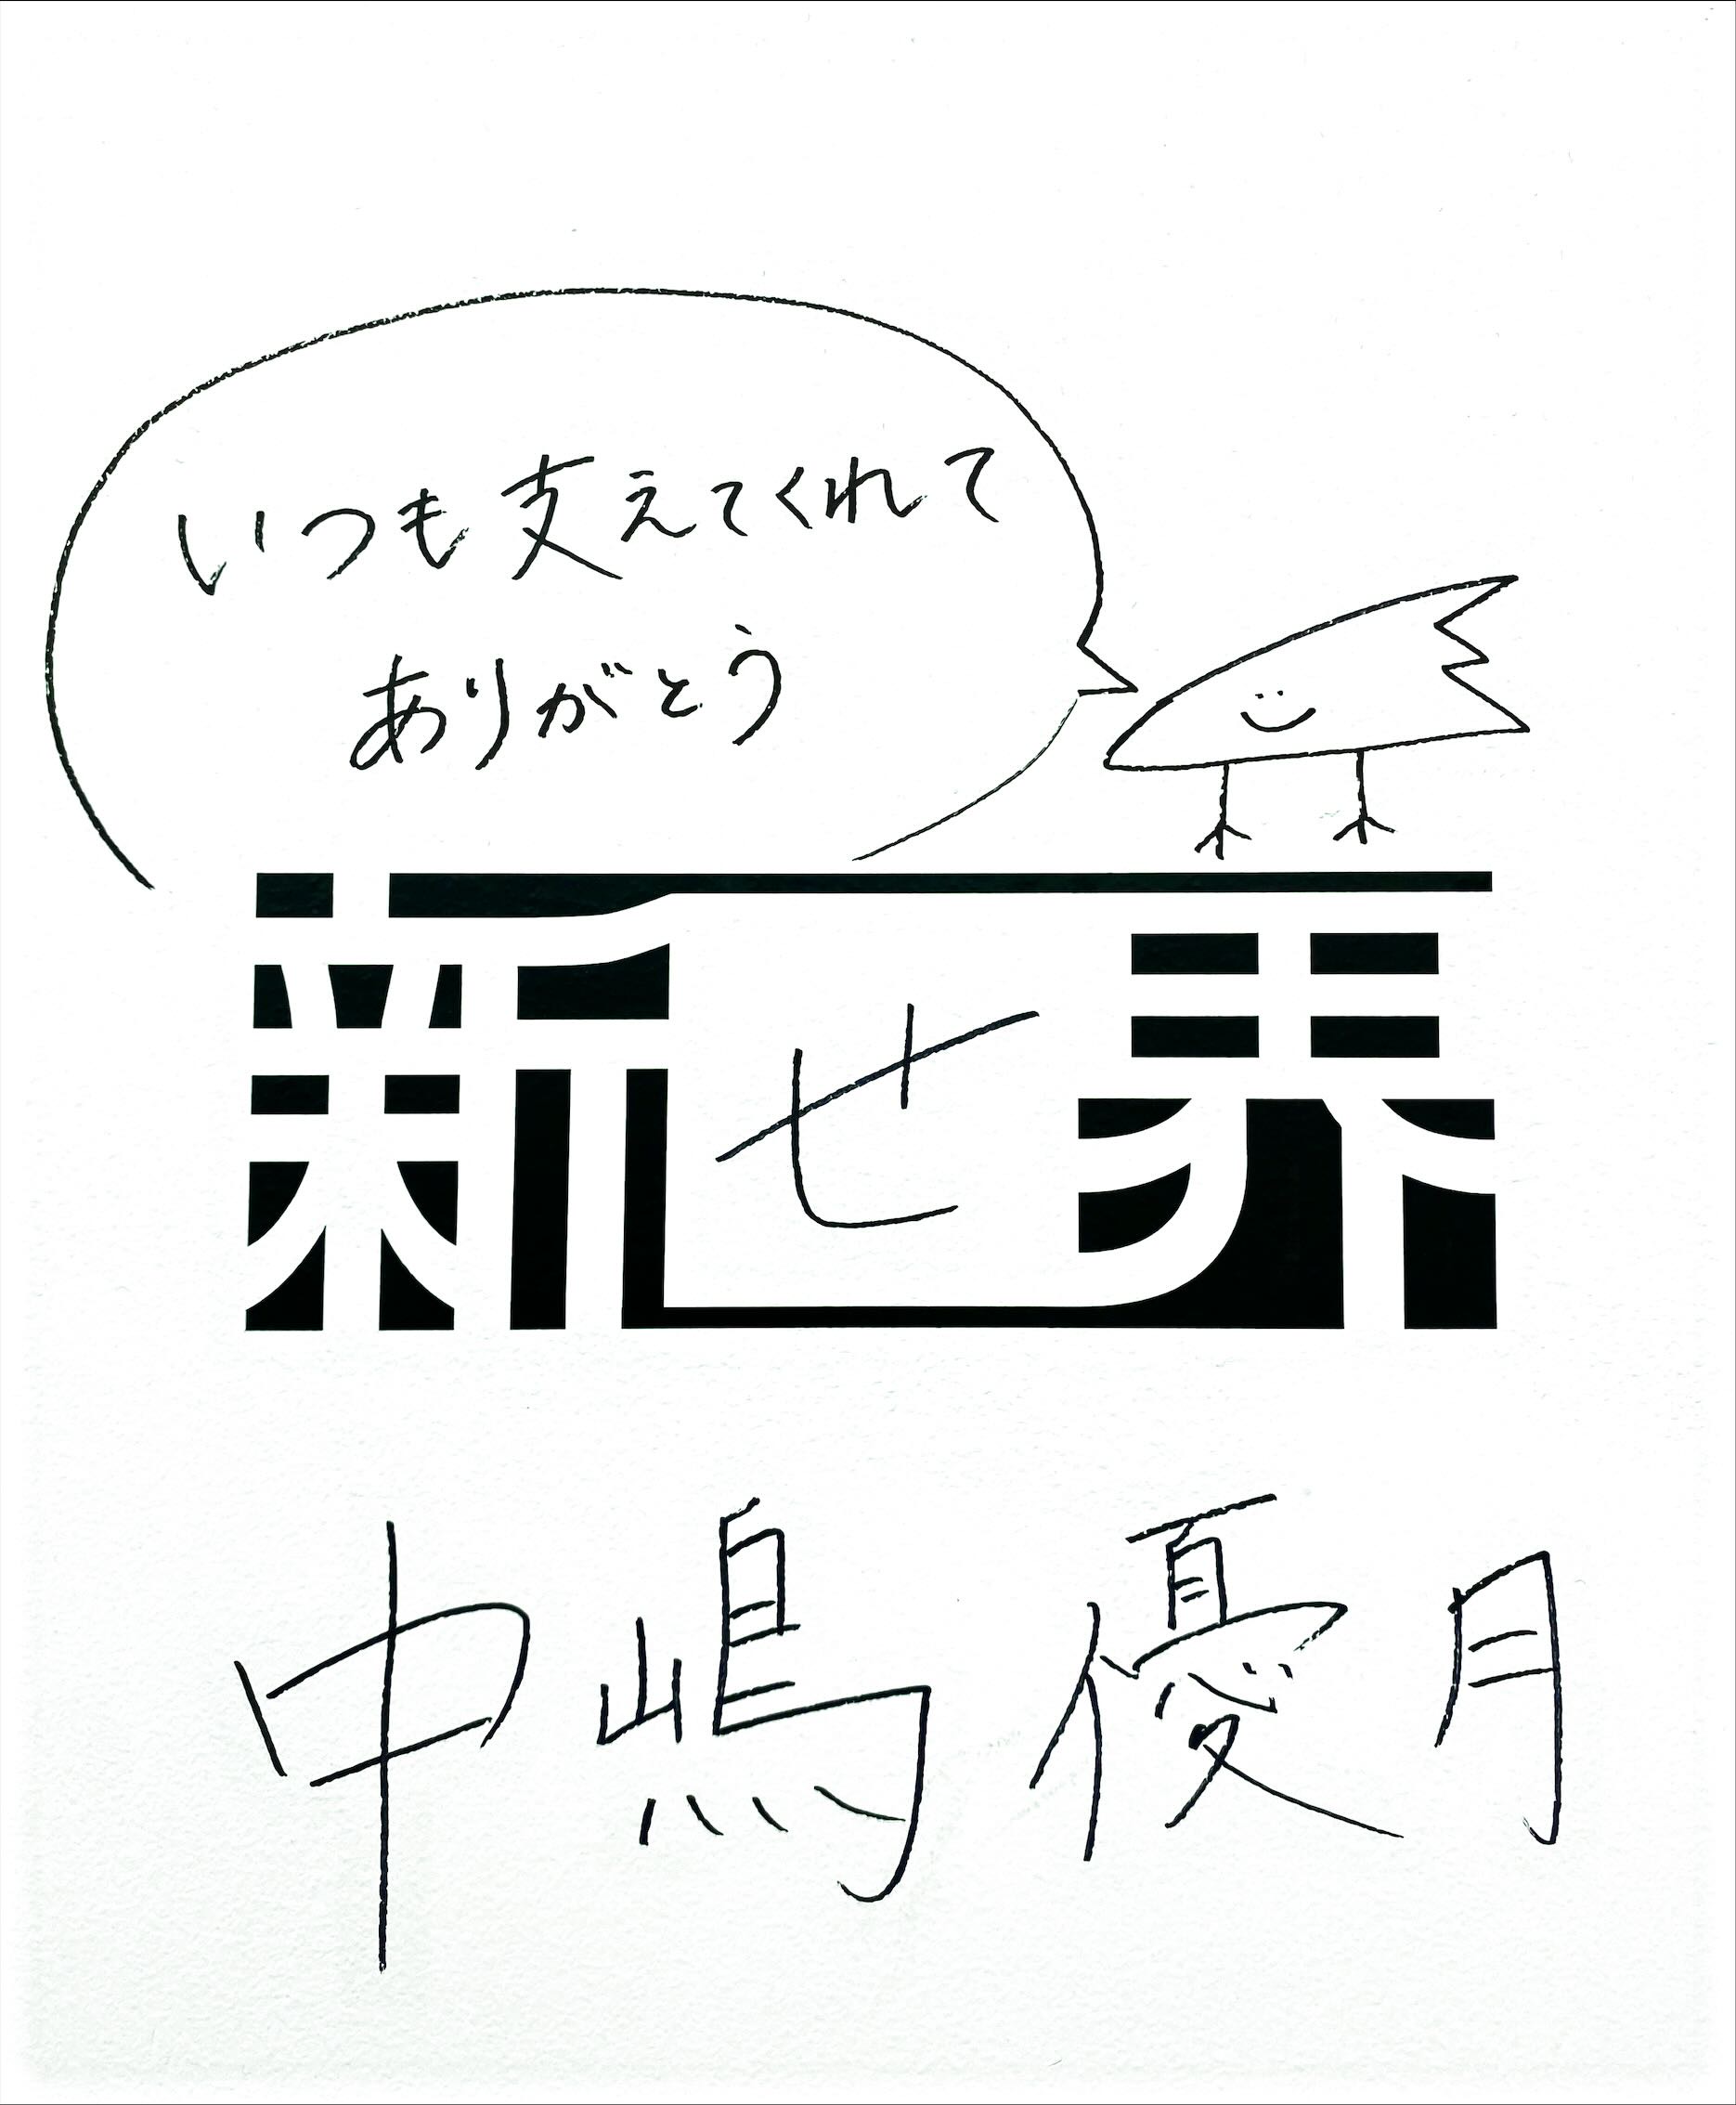 いつも支えてくれて
ありがとう
新せ界
中嶋優月